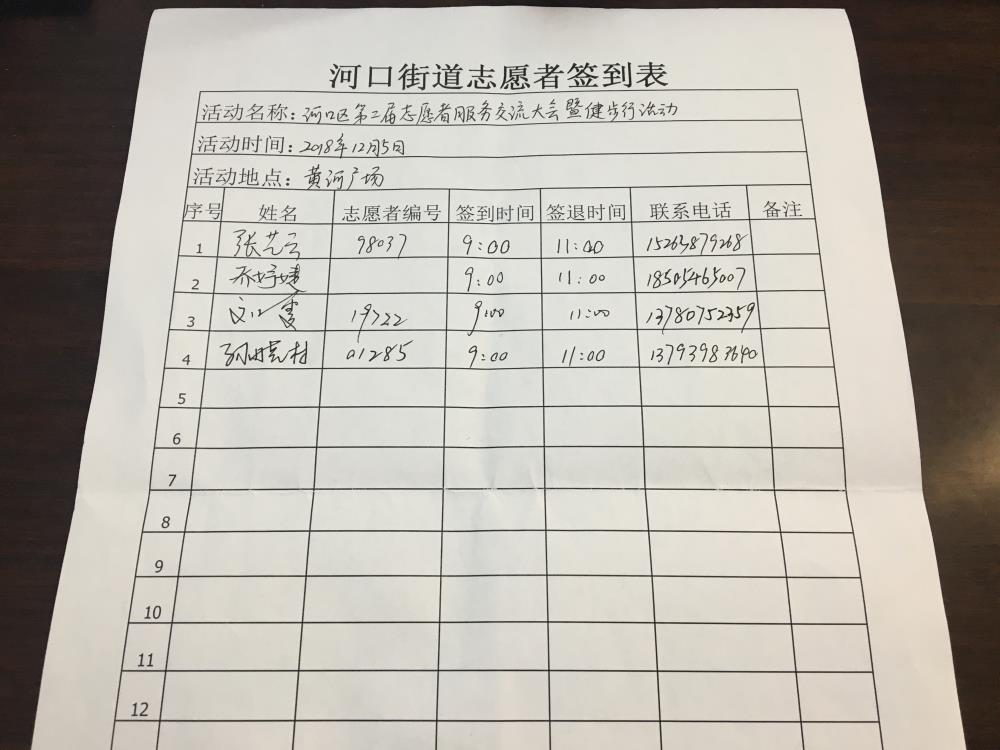 河口街道志愿者签到表
活动名称：河口区第二届志愿者服务交流大会暨健步行活动
活动时间：2018年12月5日
活动地点：黄河广场
序号 姓名 志愿者编号 签到时间 签退时间 联系电话 备注
1 张艺云 98037 9:00 11:00 15263879268
2 乔婷婕 9:00 11:00 18505465007
3 19722 9:00 11:00 13780752359
4 孙晓村 01285 9:00 11:00 13793983640
5
6
7
8
9
10
11
12